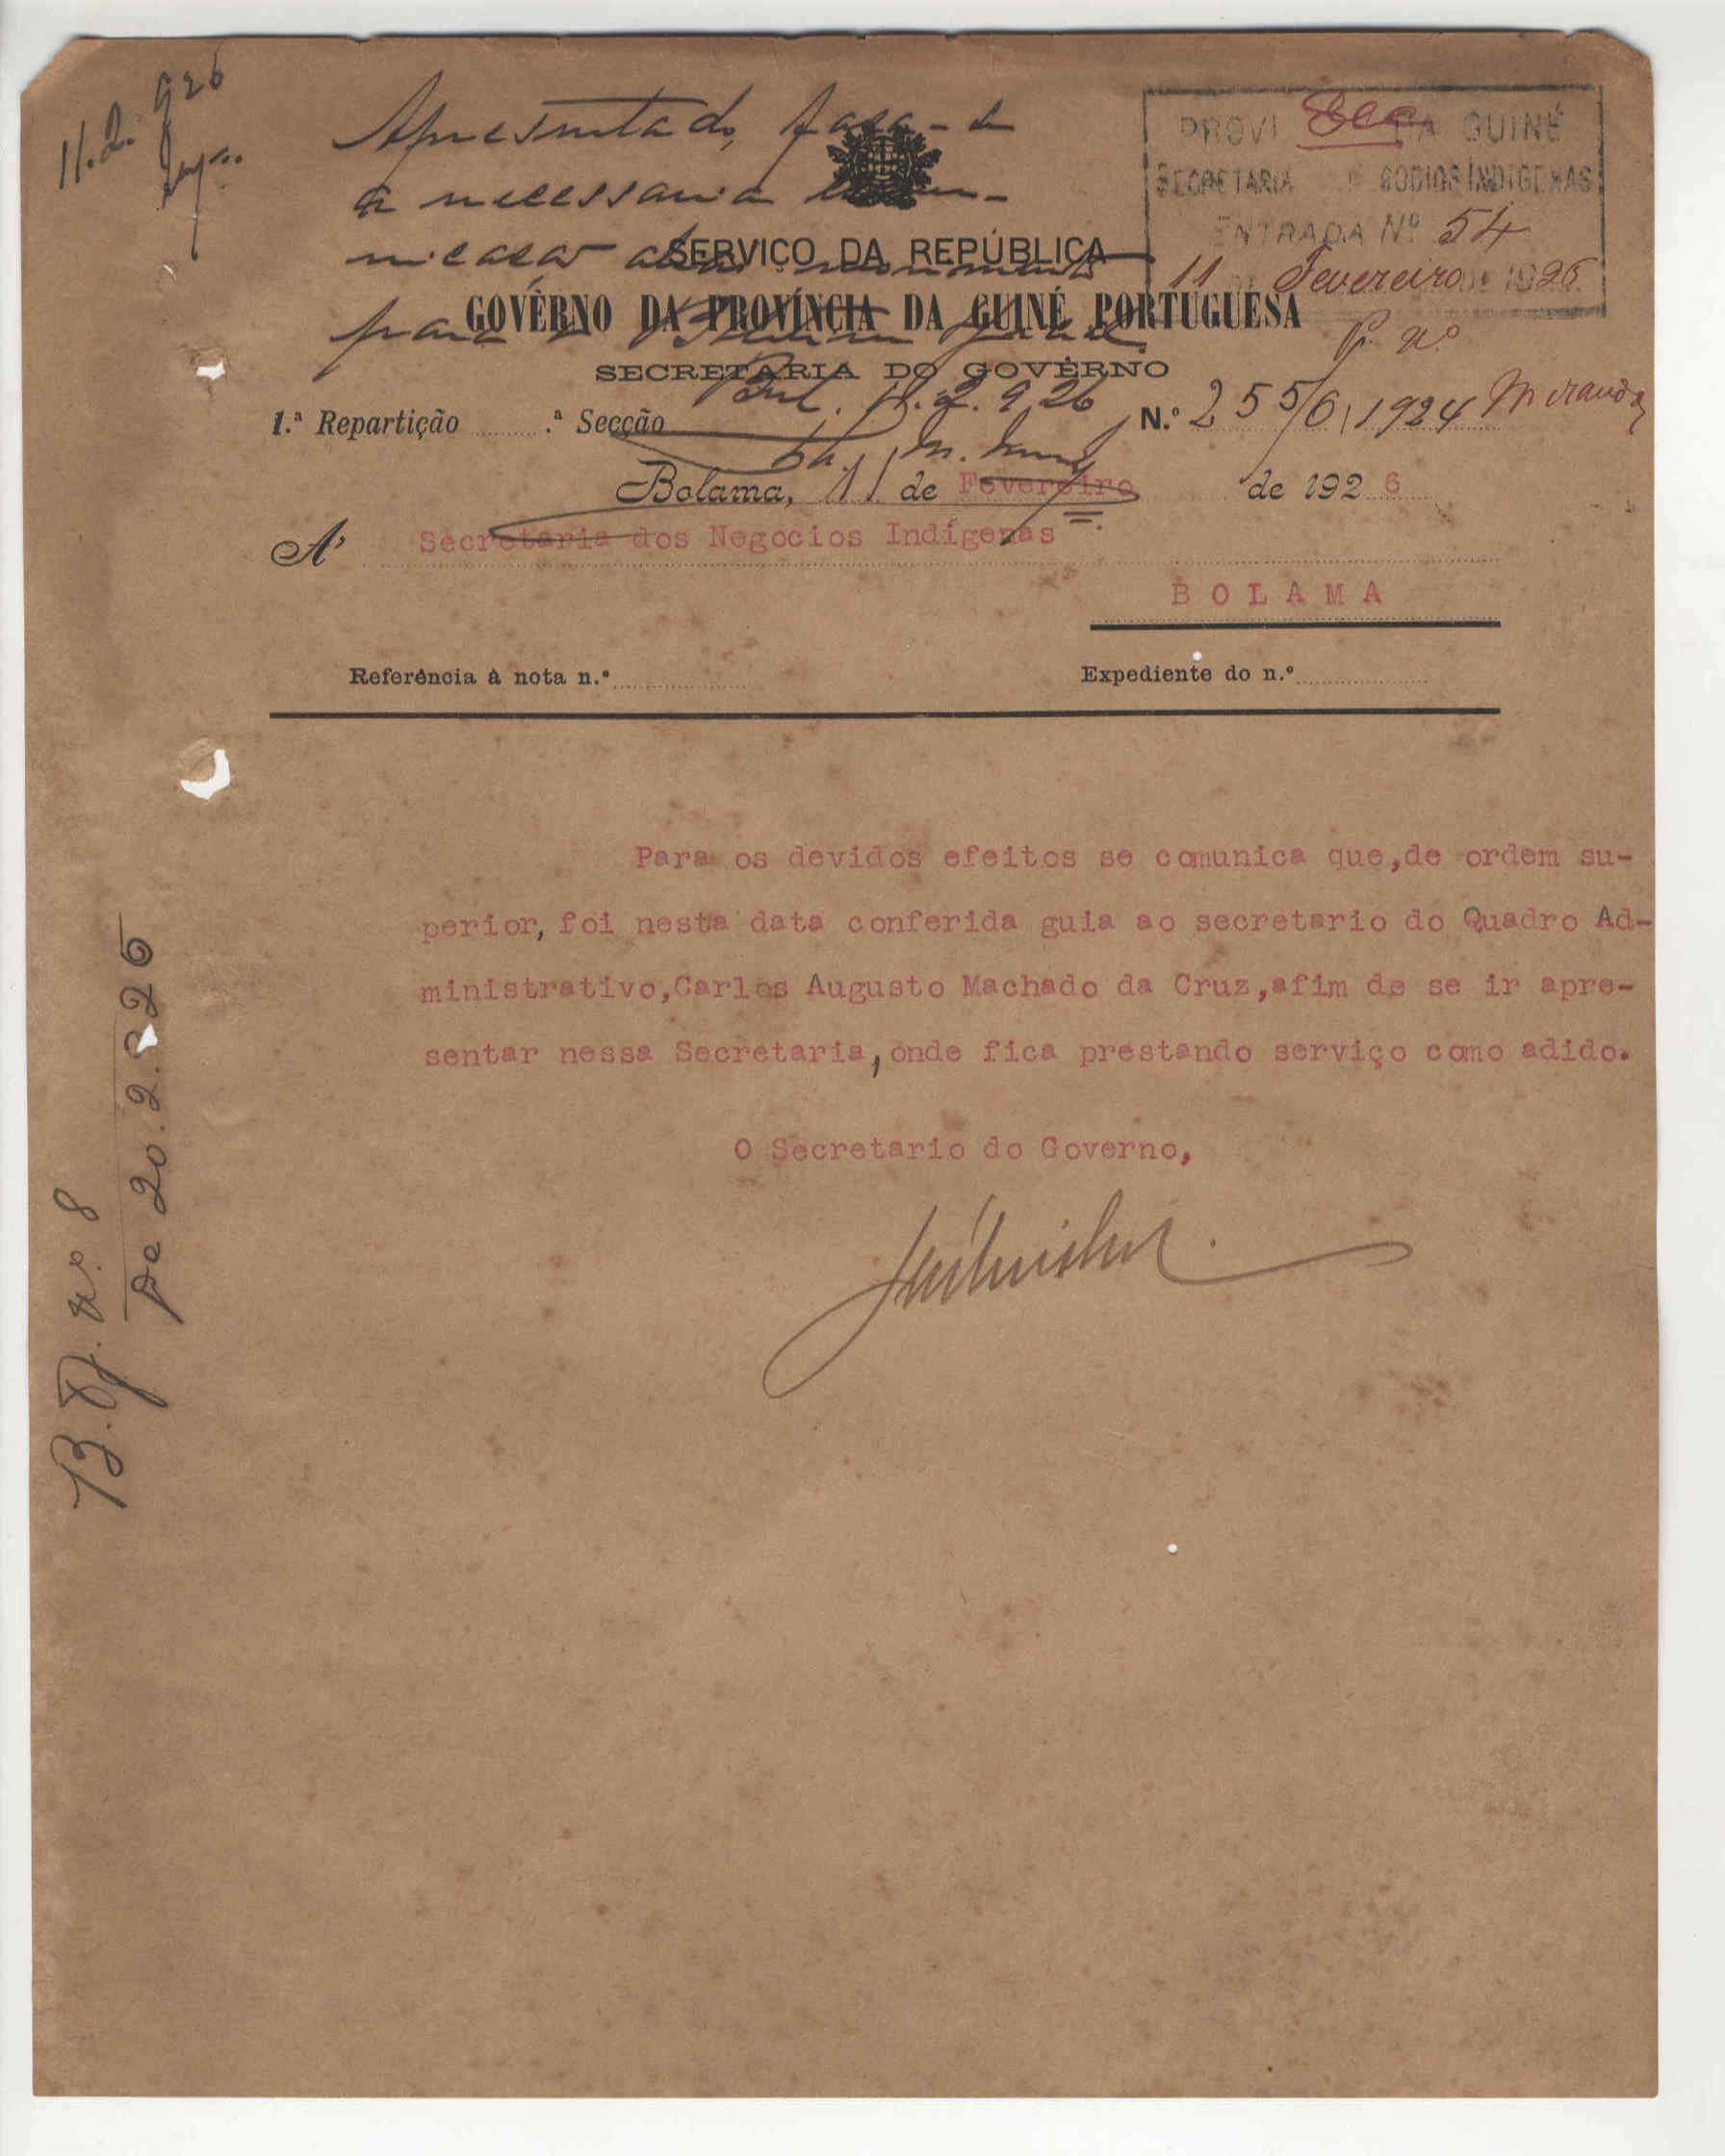 11.2.926
Apresentado, faça-se
a necessaria comu-
nicação
para o Boletim
Bol. 11.2.926
PROVI DA GUINÉ
SECRETARIA GOCIOS INDIGENAS
ENTRADA Nº 54
11 Fevereiro DE 1926
P. nº
Miranda
SERVIÇO DA REPÚBLICA
GOVÊRNO DA PROVÍNCIA DA GUINÉ PORTUGUESA
SECRETARIA DO GOVÊRNO
1.ª Repartição .ª Secção N.º 255/6/1924
Bolama, 11 de Fevereiro de 1926
A' Secretaria dos Negocios Indígenas
BOLAMA
Referência à nota n.º Expediente do n.º
Para os devidos efeitos se comunica que,de ordem su-
perior, foi nesta data conferida guia ao secretario do Quadro Ad-
ministrativo,Carlos Augusto Machado da Cruz,afim de se ir apre-
sentar nessa Secretaria, onde fica prestando serviço como adido.
O Secretario do Governo,
B. Of. nº 8
de 20.2.926